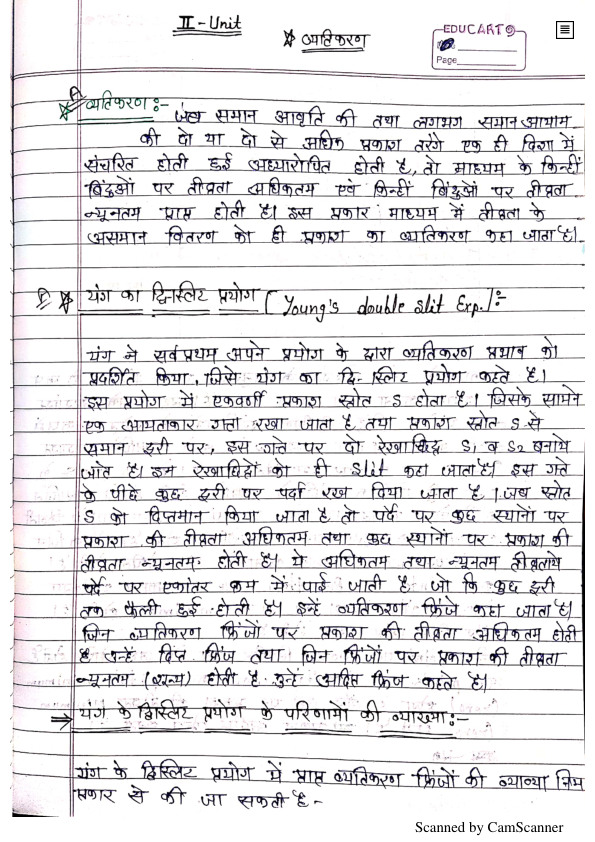 II - Unit
☆ व्यतिकरण
EDUCART
Page
व्यतिकरण :- जब समान आवृति की तथा लगभग समान आयाम
की दो या दो से अधिक प्रकाश तरंगे एक ही दिशा में
संचरित होती हुई अध्यारोपित होती है, तो माध्यम के किन्हीं
बिंदुओं पर तीव्रता अधिकतम एवं किन्हीं बिंदुओं पर तीव्रता
न्यूनतम प्राप्त होती है। इस प्रकार माध्यम में तीव्रता के
असमान वितरण को ही प्रकाश का व्यतिकरण कहा जाता है।
यंग का द्विस्लिट प्रयोग [Young's double slit Exp.] :-
यंग ने सर्वप्रथम अपने प्रयोग के द्वारा व्यतिकरण प्रभाव को
प्रदर्शित किया, जिसे यंग का द्वि-स्लिट प्रयोग कहते है।
इस प्रयोग में एकवर्णी प्रकाश स्रोत S होता है। जिसके सामने
एक आयताकार गत्ता रखा जाता है तथा प्रकाश स्रोत S से
समान दूरी पर, इस गत्ते पर दो रेखाछिद्र S₁ व S₂ बनाये
जाते है। इन रेखाछिद्रों को ही slit कहा जाता है। इस गत्ते
के पीछे कुछ दूरी पर पर्दा रख दिया जाता है। जब स्रोत
S को दिप्तमान किया जाता है तो पर्दे पर कुछ स्थानों पर
प्रकाश की तीव्रता अधिकतम तथा कुछ स्थानों पर प्रकाश की
तीव्रता न्यूनतम होती है। ये अधिकतम तथा न्यूनतम तीव्रताये
पर्दे पर एकांतर क्रम में पाई जाती है जो कि कुछ दूरी
तक फैली हुई होती है। इन्हें व्यतिकरण फ्रिंजे कहा जाता है।
जिन व्यतिकरण फ्रिंजों पर प्रकाश की तीव्रता अधिकतम होती
है उन्हें दिप्त फ्रिंज तथा जिन फ्रिंजों पर प्रकाश की तीव्रता
न्यूनतम (शून्य) होती है उन्हें अदिप्त फ्रिंज कहते है।
⇒ यंग के द्विस्लिट प्रयोग के परिणामों की व्याख्या :-
यंग के द्विस्लिट प्रयोग में प्राप्त व्यतिकरण फ्रिंजों की व्याख्या निम्न
प्रकार से की जा सकती है -
Scanned by CamScanner